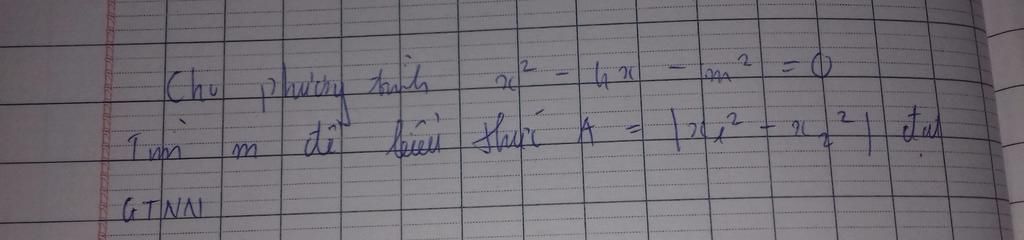 Cho phương trình x² - 4x - m² = 0
Tìm m để biểu thức A = |x₁² - x₂²| đạt
GTNN